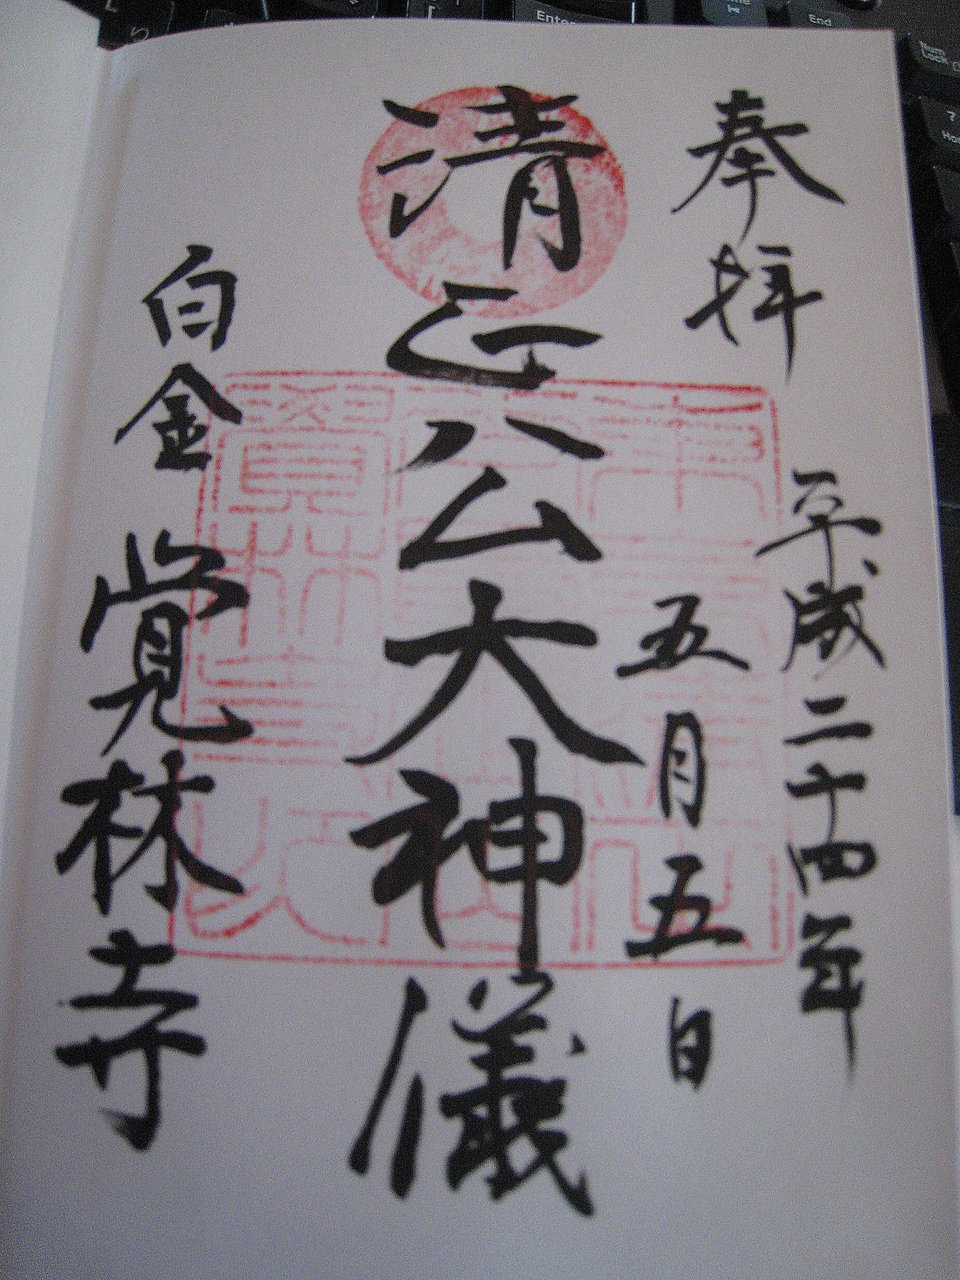 奉拝
平成二十四年
五月五日
清正公大神儀
白金 覚林寺
Enter
End
Num Lock
7